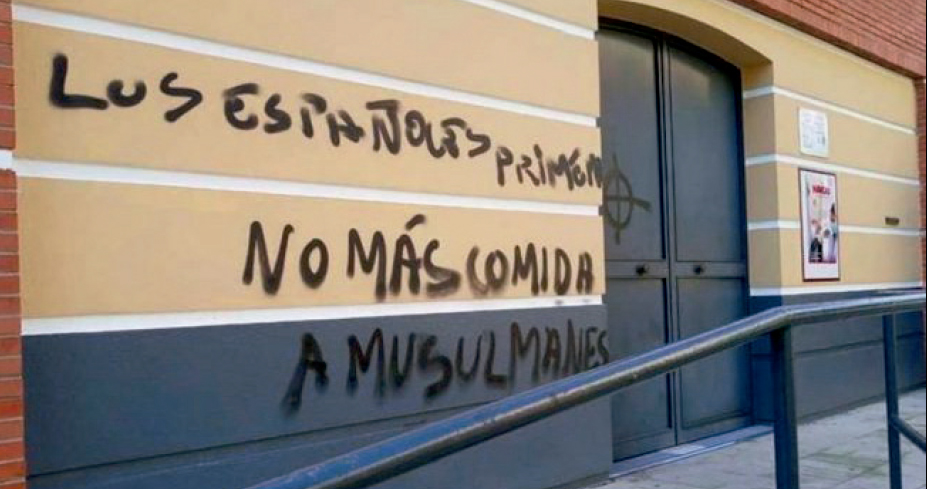 LOS ESPAÑOLES
PRIMERO
NO MÁS COMIDA
A MUSULMANES